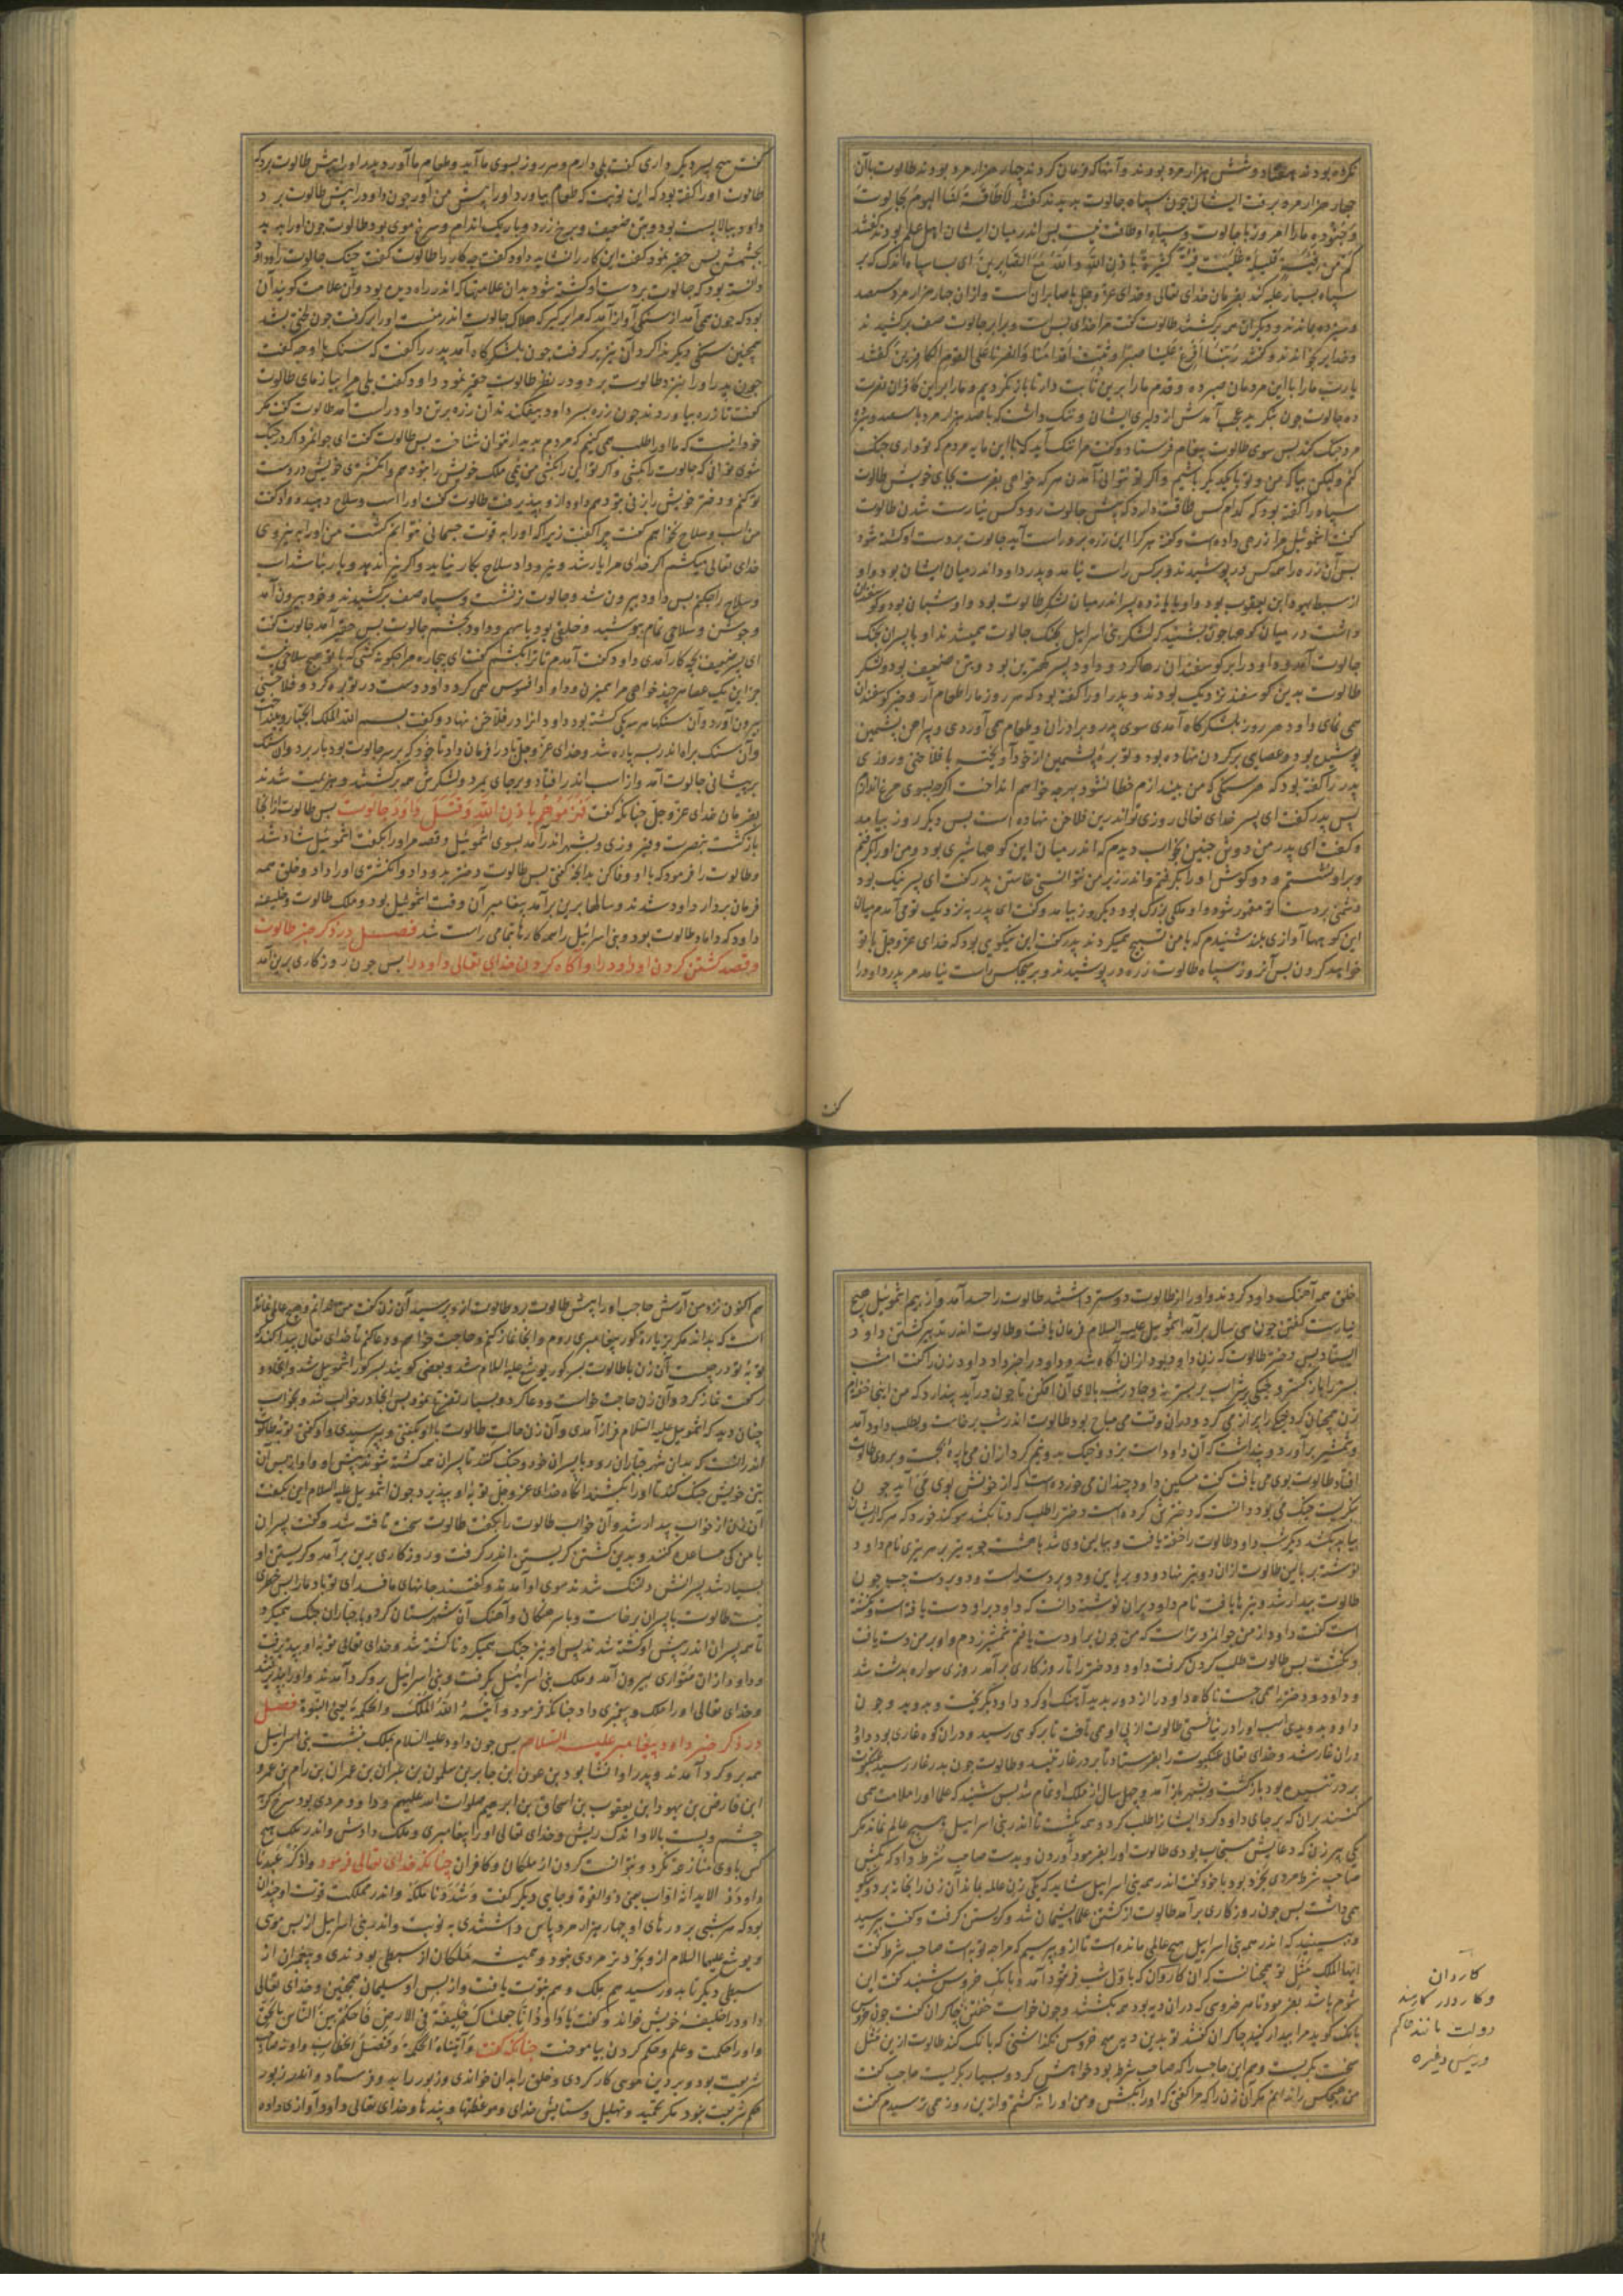 نکرده بودند هفتاد و شش هزار مرد بودند و آنها که فرمان کردند چهار هزار مرد بودند طالوت با آن
چهار هزار مرد برفت ایشان چون سپاه جالوت بدیدند گفتند لا طاقة لنا الیوم بجالوت
و جنوده ما را امروز با جالوت و سپاه او طاقت نیست پس اندر میان ایشان اهل علم بودند گفتند
کم من فئة قلیلة غلبت فئة کثیرة باذن الله و الله مع الصابرین ای بسا سپاه اندک که بر
سپاه بسیار غلبه کند بفرمان خدای تعالی و خدای عز و جل با صابران است و از آن چهار هزار مرد سیصد
و سیزده ماندند و دیگران همه برگشتند طالوت گفت مرا خدای بس است و برابر جالوت صف برکشیدند
و خدایرا بخواندند و گفتند ربنا افرغ علینا صبرا و ثبت اقدامنا و انصرنا علی القوم الکافرین گفتند
یا رب ما را با این مردمان صبر ده و قدم ما را برین ثابت دار تا بازنگردیم و ما را بر این کافران نصرت
ده جالوت چون بنگرید عجب آمدش از دلیری ایشان و ننگ داشت که با صد هزار مرد با سیصد و سیزده
مرد جنگ کند پس سوی طالوت پیغام فرستاد و گفت مرا ننگ آید که با این مایه مردم که تو داری جنگ
کنم ولیکن بیا که من و تو با یکدیگر باشیم و اگر تو نتوانی آمدن هر که خواهی بفرست بجای خویش طالوت
سپاه را گفته بود که کدام کس طاقت دارد که پیش جالوت رود کس نیارست شدن طالوت
گفت اشموئیل مرا زرهی داده است و گفته هر کرا این زره برو راست آید جالوت بر دست او کشته شود
پس آن زره را همه کس در پوشیدند و بر کس راست نیامد و پدر داود اندر میان ایشان بود و او
از سبط یهودا بن یعقوب بود و او با یازده پسر اندر میان لشکر طالوت بود و او شبان بود و گوسفندان
داشت در میان کوهها چون بشنید که لشکر بنی اسرائیل بجنگ جالوت همیشدند او با پسران بجنگ
جالوت آمد و داود را بر گوسفندان رها کرد و داود پسر کهترین بود و بتن ضعیف بود و لشکر
طالوت بدین گوسفند نزدیک بودند و پدر او را گفته بود که هر روز ما را طعام آر و خبر گوسفندان
همی نمای داود هر روز بلشکرگاه آمدی سوی پدر و برادران و طعام همی آوردی و پیراهن پشمین
پوشیده بود و عصایی بر گردن نهاده بود و توبره پشمین از خود آویخته با فلاخنی و روزی
پدر را گفته بود که هر سنگی که من بیندازم خطا نشود بهر چه خواهم انداخت اگرچه بسوی مرغ اندازم
پس پدر گفت ای پسر خدای تعالی روزی تو اندرین فلاخن نهاده است پس دیگر روز بیامد
و گفت ای پدر من دوش چنین بخواب دیدم که اندر میان این کوهها شیری بود و من او را بگرفتم
و بر او نشستم و دو گوش او را بگرفتم و اندر زیر من نتوانستی خاستن پدر گفت ای پسر نیک بود
دشمنی بر دست تو مقهور شود و او ملکی بزرگ بود و دیگر روز بیامد و گفت ای پدر به نزدیک تو می آمدم میان
این کوهها آوازی بلند شنیدم که با من تسبیح همیکردند پدر گفت این نیکویی بود که خدای عز و جل با تو
خواهد کردن پس آنروز سپاه طالوت زره در پوشیدند و بر هیچکس راست نیامد مر پدر داود را
گفت
گفت هیچ پسر دیگر داری گفت بلی دارم و هر روز بسوی ما آید و طعام ما آورد پدر او را پیش طالوت برد که
طالوت او را گفته بود که این نوبت که طعام بیاورد او را پیش من آور چون داود را پیش طالوت برد
داود ببالا پست بود و بتن ضعیف و برخ زرد و باریک اندام و سرخ موی بود طالوت چون او را بدید
بچشمش بس حقیر نمود گفت این کار را نشاید داود گفت چه کار را طالوت گفت جنگ جالوت را و داود
دانسته بود که جالوت بر دست او کشته شود بدان علامتها که اندر راه دیده بود و آن علامت گویند آن
بود که چون همی آمد از سنگی آواز آمد که مرا برگیر که هلاک جالوت اندر منست او را برگرفت چون لختی بشد
همچنین سنگی دیگر ندا کرد آن نیز برگرفت چون بلشکرگاه آمد پدر را گفت که سنگ با او چه گفت
چون پدر او را بنزد طالوت برد و در نظر طالوت حقیر نمود داود گفت بلی مرا بیازمای طالوت
گفت تا زره بیاوردند چون زره بسر داود بیفکندند آن زره بر تن داود راست آمد طالوت گفت مگر
خود اینست که ما او را طلب همی کنیم که مردم بدیدار نتوان شناخت پس طالوت گفت ای جوانمرد اگر در جنگ
شوی توانی که جالوت را بکشی و اگر تو این را بکشی من نیمی ملک خویش را بتو دهم و انگشتری خویش در دست
تو کنم و دختر خویش را بزنی بتو دهم داود از و بپذیرفت طالوت گفت او را اسب و سلاح دهید داود گفت
من اسب و سلاح نخواهم گفت چرا گفت زیرا که او را به قوت جسمانی نتوانم کشت من او را به نیروی
خدای تعالی میکشم اگر خدای مرا یار شد و نیرو داد سلاح بکار نیاید و اگر نیرو ندهد و یار نباشد اسب
و سلاح را چکنم پس داود بیرون شد و جالوت بر نشست و سپاه صف برکشیدند و خود بیرون آمد
و جوشن و سلاحی تمام بپوشید و خلقی بود با سهم و داود بچشم جالوت بس حقیر آمد جالوت گفت
ای پسر ضعیف بچه کار آمدی داود گفت آمدم تا ترا بکشم گفت ای بیچاره مرا چگونه کشی که با تو هیچ سلاحی نیست
جز این یک عصا هر چند خواهی مرا همیزن و داود را افسوس همی کرد داود دست در توبره کرد و فلاخنی
بیرون آورد و آن سنگها هر سه یکی گشته بود داود آنرا در فلاخن نهاد و گفت بسم الله الملک الجبار و بینداخت
و آن سنگ براه اندر سه پاره شد و خدای عز و جل باد را فرمان داد تا خود که بر سر جالوت بود بار برد و آن سنگ
بر پیشانی جالوت آمد و از اسب اندر افتاد و بر جای بمرد و لشکرش همه برگشتند و هزیمت شدند
بفرمان خدای عز و جل چنانکه گفت فهزموهم باذن الله و قتل داود جالوت پس طالوت از آنجا
بازگشت بنصرت و فیروزی و بشهر اندر آمد بسوی اشموئیل و قصه مر او را بگفت اشموئیل شاد شد
و طالوت را فرمود که با او وفا کن بدانچه گفتی پس طالوت دختر بدو داد و انگشتری او را داد و خلق همه
فرمان بردار داود شدند و سالها برین برآمد پیغامبر آن وقت اشموئیل بود و ملک طالوت و خلیفه
داود که داماد طالوت بود و بنی اسرائیل را همه کارها بتمامی راست شد فصل در ذکر خبر طالوت
و قصد کشتن کردن او داود را و آگاه کردن خدای تعالی داود را پس چون روزگاری برین آمد
خلق همه آهنگ داود کردند و او را از طالوت دوستر داشتند طالوت را حسد آمد و از بیم اشموئیل هیچ
نیارست گفتن چون سی سال برآمد اشموئیل علیه السلام فرمان یافت و طالوت اندر تدبیر کشتن داود
ایستاد پس دختر طالوت که زن داود بود از آن آگاه شد و داود را خبر داد داود زن را گفت امشب
بستر را باز گستر و خیکی پر شراب بر بستر نه و چادر شب بالای آن افکن تا چون در آید پندارد که من اینجا خفته ام
زن همچنان کرد خیک را پر از می کرد و در آن وقت می مباح بود طالوت اندر شب برخاست و بطلب داود آمد
و شمشیر برآورد و پنداشت که آن داود است بزد و خیک بدو نیم کرد از آن می پاره بجست و بر روی طالوت
افتاد طالوت بوی می یافت گفت مسکین داود چندان می خورده است که از خونش بوی می آید چون
بنگریست خیک می بود دانست که دخترش کرده است دختر را طلب کرد تا بکشد سوگند خورد که هر که ایشان
بیابد بکشد دیگر شب داود طالوت را خفته یافت و ببالین وی شد با هشت چوبه تیر بر هر تیزی نام داود
نوشته بر بالین طالوت از آن دو تیر نهاد و دو بر پایین و دو بر دست راست و دو بر دست چپ چون
طالوت بیدار شد و تیرها یافت نام داود بر آن نوشته دانست که داود بر او دست یافته است و نکشته
است گفت داود از من جوانمردتر است که من چون بر او دست یافتم شمشیر زدم و او بر من دست یافت
و نکشت پس طالوت طلب کردن گرفت داود و دختر را تا روزگاری برآمد روزی سواره بدشت شد
و داود و دختر را همی جست ناگاه داود را از دور بدید آهنگ او کرد داود بگریخت و بدوید و چون
داود بدویدی اسب او را در نیافتی طالوت از پی او همی تاخت تا بر کوهی رسید و در آن کوه غاری بود داود
در آن غار شد و خدای تعالی عنکبوت را بفرستاد تا بر در غار تنید و طالوت چون بدر غار رسید عنکبوت
بر در تنیده بود بازگشت و بشهر باز آمد و چهل سال از ملک او تمام شد پس شنید که علما او را ملامت همی
کنند بر آن که بر جای داود کرد ایشانرا طلب کرد و همه بکشت تا اندر بنی اسرائیل هیچ عالم نماند مگر
یکی پیر زن که دعایش مستجاب بودی طالوت او را بفرمود آوردن و بدست صاحب شرط داد که بکش
صاحب شرط مردی بخرد بود با خود گفت اندر همه بنی اسرائیل شاید که یکی زن عالمه بماند آن زن را بخانه برد و نیکو
همی داشت پس چون روزگاری برآمد طالوت از کشتن علما پشیمان شد و گریستن گرفت و گفت بپرسید
و ببینید که اندر همه بنی اسرائیل هیچ عالمی مانده است تا از و بپرسیم که مرا چه توبه است صاحب شرط گفت
ایها الملک مثل تو همچنانست که آن کاروان که باول شب فرود آمد و بانگ خروس شنید گفت این
شوم باشد بفرمود تا هر خروسی که در آن دیه بود همه بکشتند و چون خواست خفتن چاکران گفت چون خروس
بانگ کوید مرا بیدار کنید چاکران گفتند تو بدین دیه هیچ خروس نگذاشتی که بانگ کند طالوت ازین مثل
سخت بگریست و هم این حاجب را که صاحب شرط بود خواهش کرد و بسیار بگریست حاجب گفت
من هیچکس را ندانم مگر آن زن را که مرا گفتی که او را بکش و من او را نکشتم و ازین روز همی ترسیدم گفت
کاردان
و کاردار کاربند
دولت مانند حاکم
و رئیس و غیره
هم اکنون نزد من آرش حاجب او را پیش طالوت برد طالوت از و پرسید آن زن گفت من ندانم و هیچ عالمی نمانده
است که بداند مگر بزیارت گور پیغامبری روم و آنجا نماز کنم و حاجت خواهم و دعا کنم تا خدای تعالی پیدا کند که
توبه تو در چیست آن زن با طالوت بسر گور یوشع علیه السلام شد و بعضی گویند بسر گور اشموئیل شد و آنجا دو
رکعت نماز کرد و آن زن حاجت خواست و دعا کرد و بسیار تضرع نمود پس آنجا در خواب شد و بخواب
چنان دید که اشموئیل علیه السلام فراز آمدی و آن زن حالت طالوت با او بگفتی و بپرسیدی و او گفتی توبه طالوت
اندر آنست که بدان شهر جباران رود با پسران خود و جنگ کند تا پسران همه کشته شوند پیش او و او از پس آن
بتن خویش جنگ کند تا او را بکشند آنگاه خدای عز و جل توبه او بپذیرد چون اشموئیل علیه السلام این بگفت
آن زن از خواب بیدار شد و آن خواب طالوت را بگفت طالوت سخت تافته شد و گفت پسران
با من کی مساعده کنند و بدین کشتن گریستن اندر گرفت و روزگاری برین برآمد و گریستن او
بسیار شد پسرانش دلتنگ شدند سوی او آمدند و گفتند جانهای ما فدای تو باد ما را بس خطری
نیست طالوت با پسران برخاست و با سرهنگان و آهنگ آن شهرستان کرد و با جباران جنگ همیکرد
تا همه پسران اندر پیش او کشته شدند پس او نیز جنگ همیکرد تا کشته شد و خدای تعالی توبه او بپذیرفت
و داود از آن متواری بیرون آمد و ملک بنی اسرائیل بگرفت و بنی اسرائیل برو گرد آمدند و او را بپذیرفتند
و خدای تعالی او را ملک و پیغمبری داد چنانکه فرمود و آتیه الله الملک و الحکمة یعنی النبوة فصل
در ذکر خبر داود پیغامبر علیه السلام پس چون داود علیه السلام بملک بنشست بنی اسرائیل
همه برو گرد آمدند و پدر او ایشا بود بن عون ابن جابر بن سلمون بن نحران بن عمران بن رام بن عمرو
ابن فارض بن یهودا بن یعقوب بن اسحاق بن ابراهیم صلوات الله علیهم و داود مردی بود سرخ گونه
چشم و پست بالا و اندک ریش و خدای تعالی او را پیغامبری و ملک دادش و اندر ملک هیچ
کس با وی منازعه نکرد و نتوانست کردن از ملکان و کافران چنانکه خدای تعالی فرمود و اذکر عبدنا
داود ذا الاید انه اواب یعنی ذو القوة و جایی دیگر گفت و شددنا ملکه و اندر مملکت قوت او چندان
بود که هر شبی بر در های او چهار هزار مرد پاس داشتندی به نوبت و اندر بنی اسرائیل از پس موسی
و یوشع علیهما السلام از و بخردتر مردی نبود و همیشه ملکان از سبطی بودندی و پیغمبران از
سبطی دیگر تا بدو رسید هم ملک و هم نبوت یافت و از پس او سلیمان همچنین و خدای تعالی
داود را خلیفه خویش خواند و گفت یا داود انا جعلناک خلیفة فی الارض فاحکم بین الناس بالحق
و او را حکمت و علم و حکم کردن بیاموخت چنانکه گفت و آتیناه الحکمة و فصل الخطاب و او نه صاحب
شریعت بود و بر دین موسی کار کردی و خلق را بدان خواندی و زبور را بدو فرستاد و اندر زبور
حکم شریعت نبود مگر تحمید و تهلیل و ستایش خدای و موعظتها و پندها و خدای تعالی داود را آوازی داده